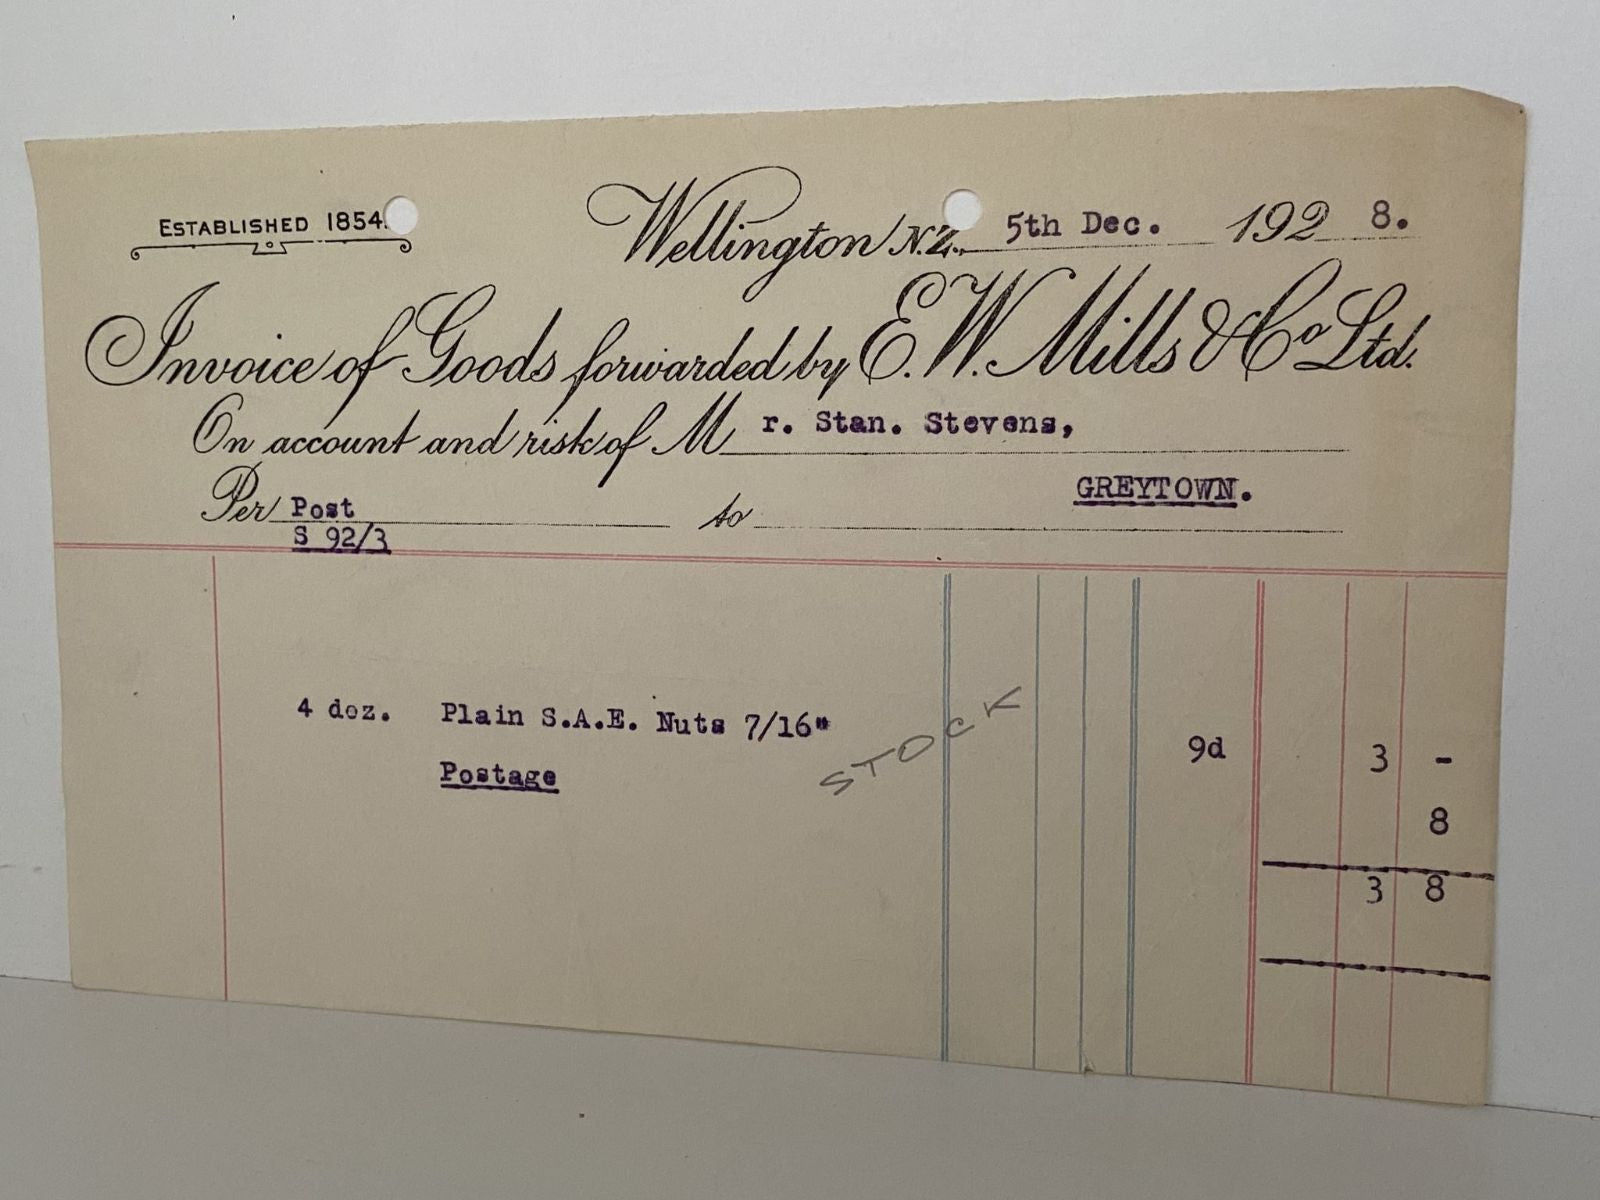 ESTABLISHED 1854.
Wellington N.Z. 5th Dec. 1928.
Invoice of Goods forwarded by E. W. Mills & Co Ltd.
On account and risk of Mr. Stan. Stevens,
GREYTOWN.
Per Post to
S 92/3
4 doz. Plain S.A.E. Nuts 7/16" 9d 3 -
STOCK
Postage 8
3 8